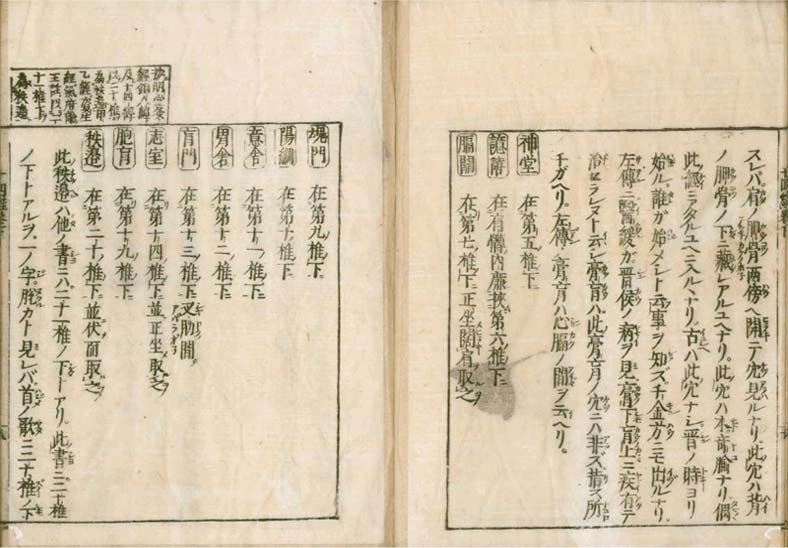 スレバ肩ノ胛骨両傍ヘ開テ穴見ルナリ此穴ハ背
ノ胛骨ノ下ニ蔵レアルユヘナリ。此穴ハ本 ナリ偶
此 ニアタルユヘニ入ルヽナリ。古ハ此穴ナシ晋ノ時ヨリ
始ル。誰ガ始メシト云事ヲ知ズ千金方ニモ出ルナリ
左傳ニ醫緩ガ晋侯ノ病ヲ見膏下肓上ニ疾有テ
治セラレヌト云シ膏肓ハ此膏肓ノ穴ニハ非ズ指ス所
チガヘリ。左傳ノ膏肓ハ心膈ノ間ヲ云ヘリ。
神堂 在第五椎下
譩譆 在肩髆内廉挾第六椎下
膈關 在第七椎下正坐闊肩取之
魂門 在第九椎下
陽綱 在第十椎下
意舎 在第十一椎下
胃舎 在第十二椎下
肓門 在第十三椎下叉肋間。
志室 在第十四椎下並正坐取之
胞肓 在第十九椎下
秩邉 在第二十椎下並伏而取之
此秩邉ハ他ノ書ニハ二十一椎ノ下トアリ。此書ニ二十椎
ノ下トアルヲ一ノ字脱カト見レバ首ノ歌ニ二十椎ノ下
十一椎下
為秩邉